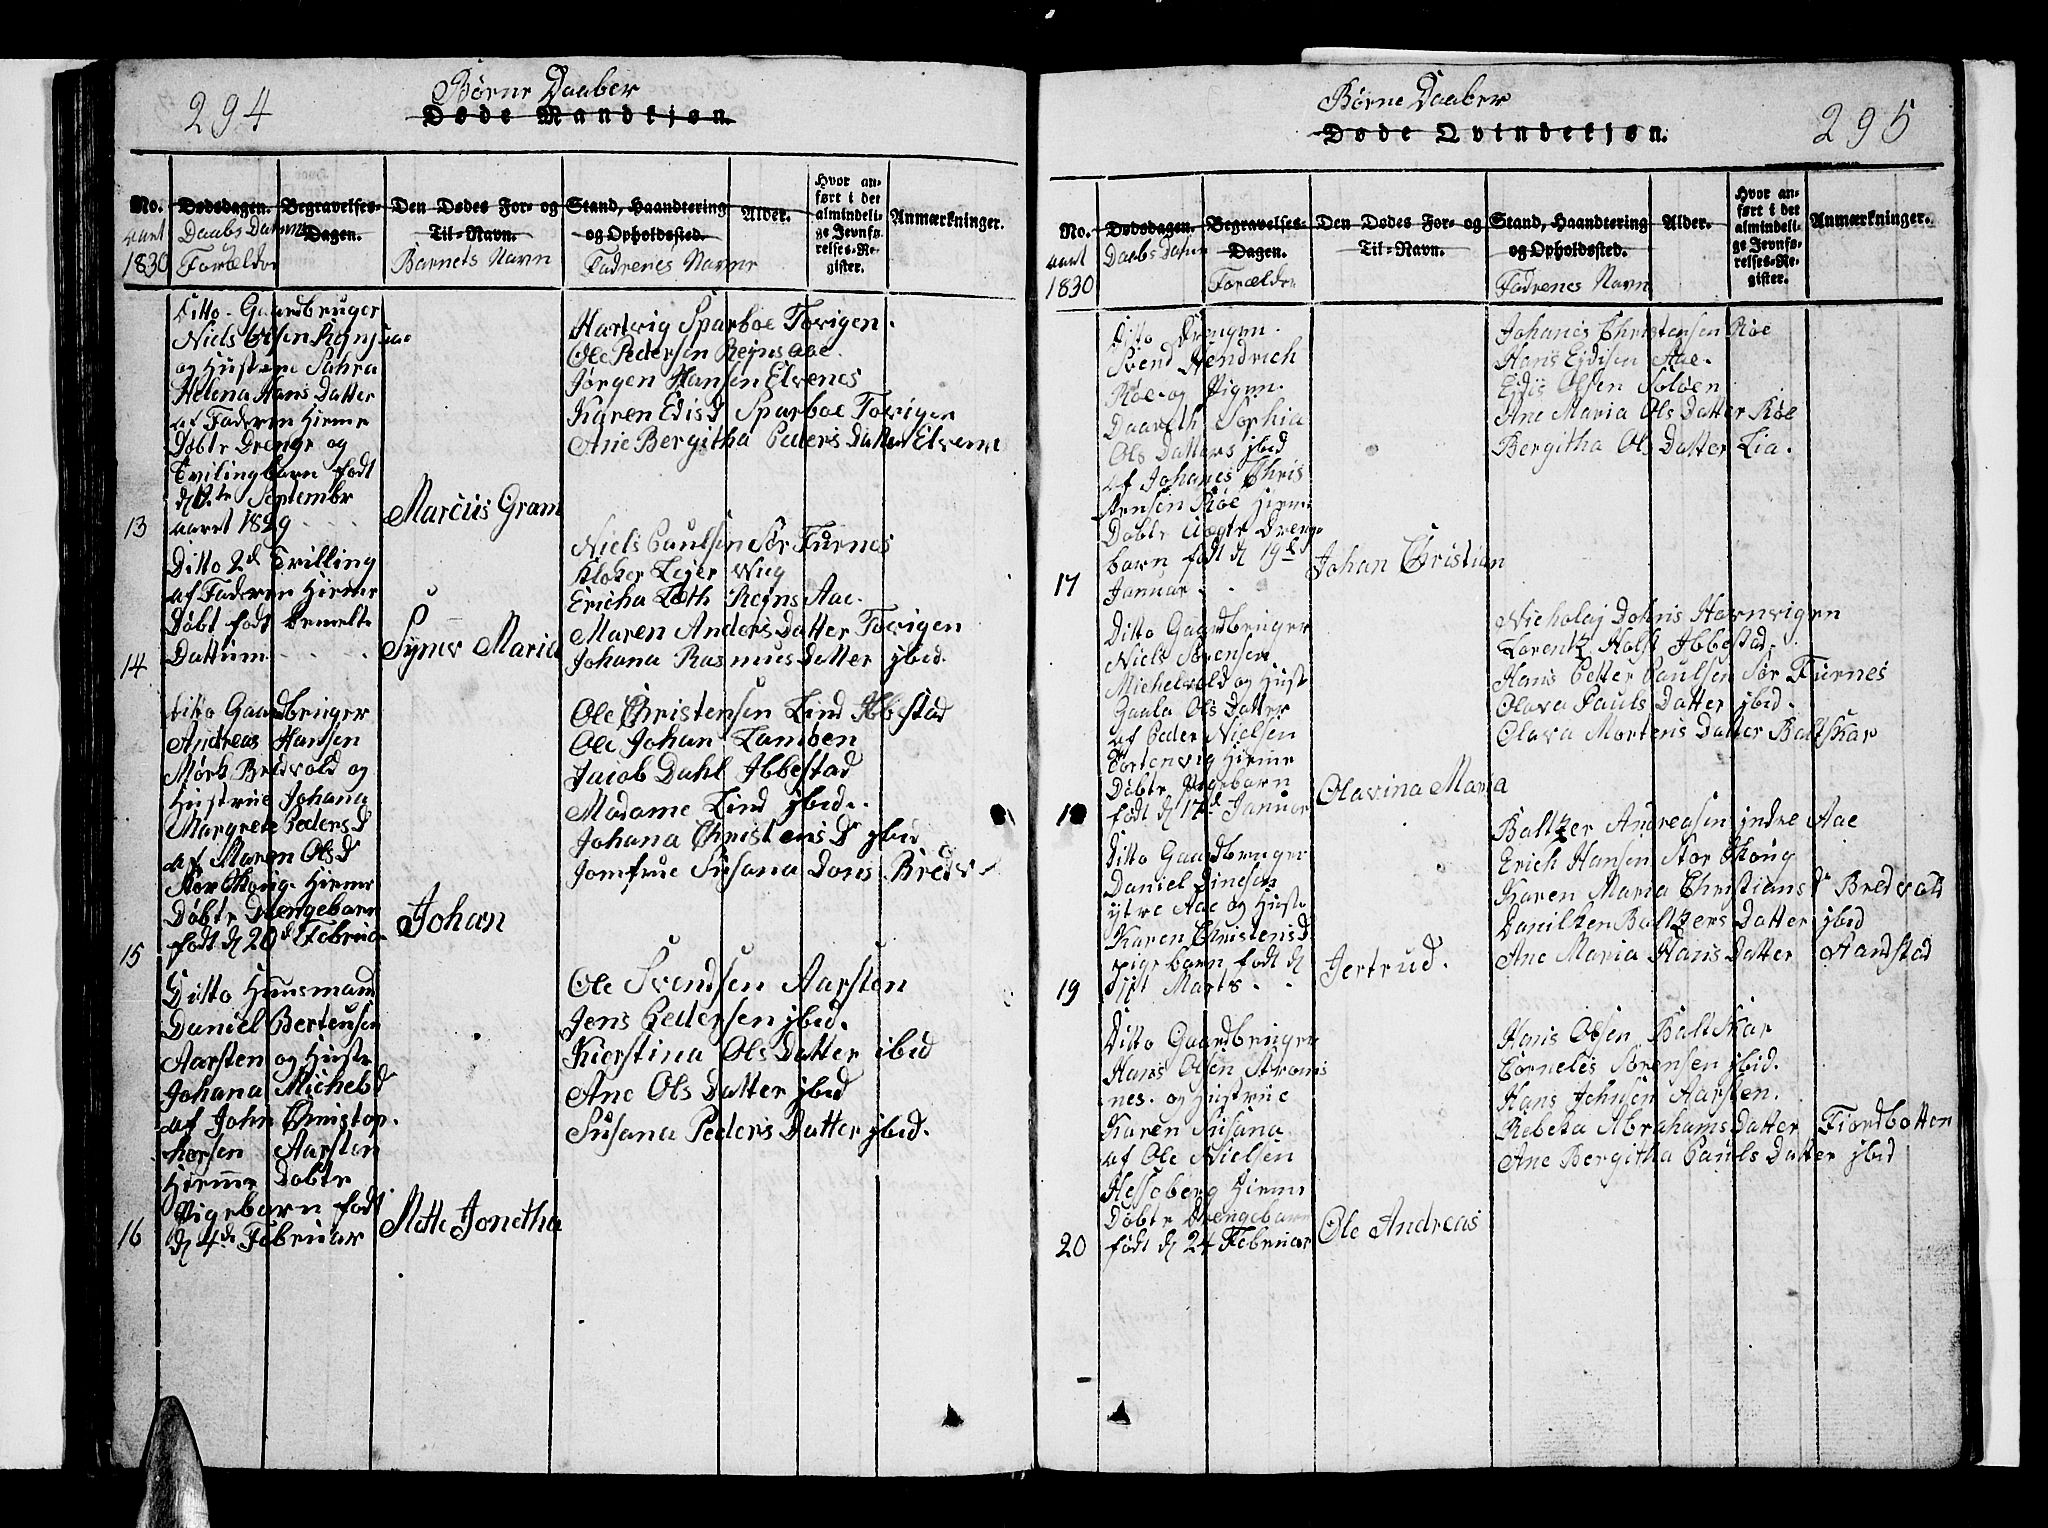 294
Børne Daaber
Døde Mandkjøn.
No.
aaret
1830
Dødsdagen.
Daabs Datum
Forældre
Begravelses-
Dagen.
Den Dødes For- og
Til-Navn.
Barnets Navn
Stand, Haandtering
og Opholdssted.
Fadrenes Navne
Alder.
Hvor an-
ført i det
almindeli-
ge Jevnfø-
relses-Re-
gister.
Anmærkninger.
Ditto Gaardbruger
Niels Olsen
og Hustrue Sahra
Helena Hans Datter
af Faderen Hieme
Døbte Drenge og
Tvilingbarn født
d 12te Septembr
13 aaret 1829
Marcus Gram
Hartvig Sparboe Tovigen.
Ole Pedersen Rejnsaae.
Jørgen Hansen Elvenes
Karen Edisd Sparboe Tovigen
Ane Bergitha Peders Datter Elvenes
Ditto 2d Tvilling
af Faderen Hieme
Døbt født bemelte
14 Dattum
Synev Maria
Niels Paulsen Sør Furnes
Kloker Lejer Wug
Ericha Loth Rejns Aae.
Maren Anders Datter Tovigen
Johana Rasmus Datter jbid.
Ditto Gaardbruger
Andreas Hansen
Mørk Bredvold og
Hustrue Johana
Margrete Pedersd
af Maren Olsd
Stor Skoug Hieme
Døbte Drengebarn
15 født d 20d Februa
Johan
Ole Christensen Lind Jbbestad
Ole Johan Lamben
Jacob Dahl Jbbestad
Madame Lind jbid.
Johana Christens Dr jbid
Jomfrue Susana Dons Bredv
Ditto Huusmand
Daniel Bertensen
Aarsten og Hustr
Johana Michelsd
af John Christop
hersen Aarsten
Hieme Døbte
Pigebarn født
16 d 4de Februar
Mette Jonetha
Ole Svendsen Aarsten
Jens Pedersen jbid.
Kierstina Ols Datter jbid
Ane Ols Datter jbid
Susana Peders Datter jbid.
Børne Daaber
295
Døde Qvindekjøn.
No.
aaret
1830
Dødsdagen.
Daabs Datum
Begravelses-
Dagen.
Forældre
Den Dødes For- og
Til-Navn.
Stand, Haandtering
og Opholdssted.
Fadrenes Navn
Alder.
Hvor an-
ført i det
almindeli-
ge Jevnfø-
relses-Re-
gister.
Anmærkninger.
Ditto Drengen.
Svend Hendrich
Røe og Pigen.
Daareth Sophia
Ols Datters jbid
af Johanes Chris
tensen Røe Hiem
Døbte Uægte Drenge
barn født d 19de
17 Januar
Johan Christian
Johanes Christensen Røe
Hans Ejdisen Aae.
Edis Olsen Soløen
Ane Maria Ols Datter Røe
Bergitha Ols Datter Lia.
Ditto Gaardbruger
Niels Sørensen
Michelvold og Hust
Gaala Ols Datter
af Peder Nielsen
Tortenvig Hieme
Døbte Pigebarn
18 født d 17d Januar
Olavina Maria
Nicholaj Dohns Havnvigen
Lorentz Holst Jbbestad
Hans Petter Paulsen Sør Furnes
Olava Pauls Datter jbid.
Olava Mortens Datter Baltskar
Ditto Gaardbruger
Daniel
ytre Aae og Huste
Karen Christensd
pigebarn født d
19 Marts
Jertrud.
Baltzer Andreasen jndre Aae
Erich Hansen Stor Skoug
Karen Maria Christians Dr Bredvold
Danilken Baltzers Datter jbid
Ane Maria Hans Datter Handstad
Ditto Gaardbruger
Hans Olsen Strøms
nes. og Hustrue
Karen Susana
af Ole Nielsen
Hesseberg Hieme
Døbte Drengebarn
20 født d 24 Februar
Ole Andreas
Hans Olsen Baltskar
Cornelis Sørensen jbid.
Hans Johnsen Aarsten.
Rebeka Abrahams Datter Fiordbotten
Ane Bergitha Pauls Datter jbid